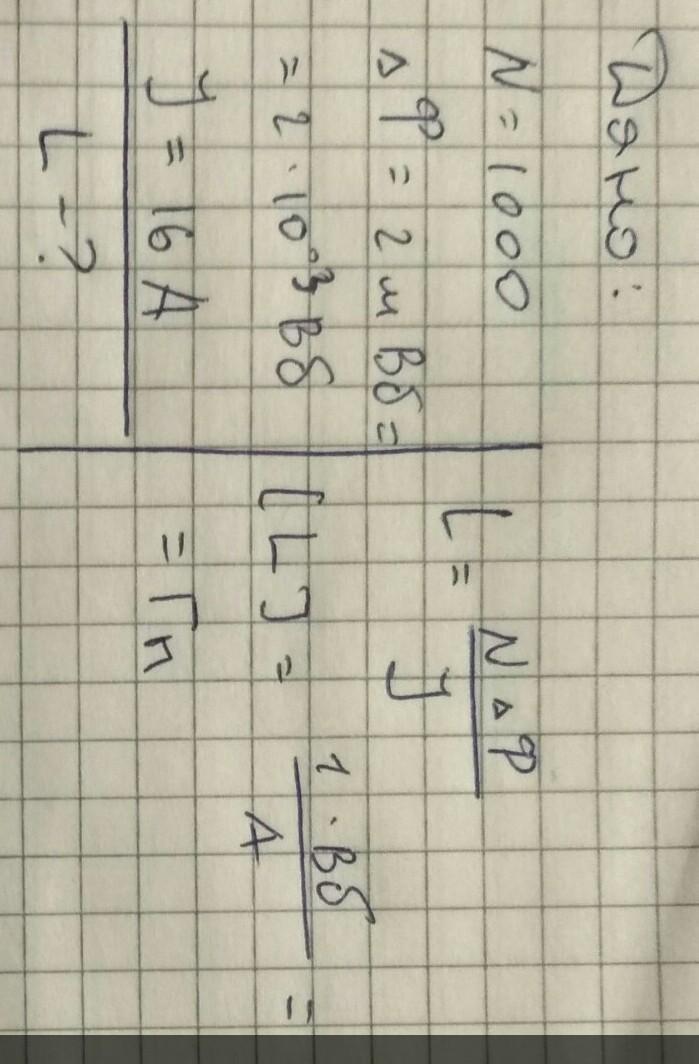 Дано:
N = 1000
△Ф = 2 мВб =
= 2 · 10⁻³ Вб
J = 16 A
L - ?
L = N△Ф / J
[L] = 1 · Вб / A =
= Гн